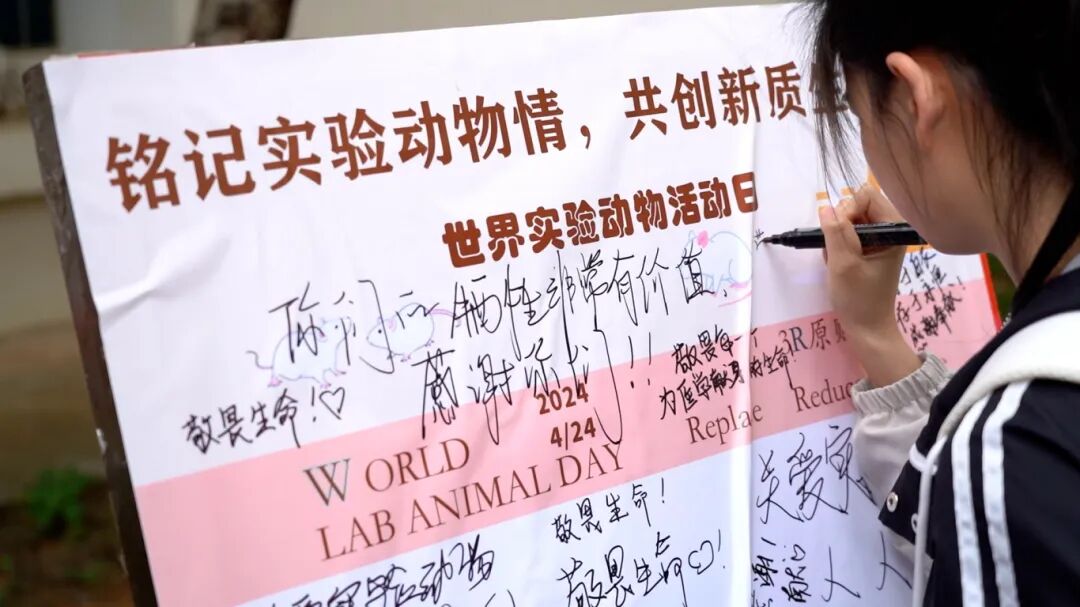 铭记实验动物情，共创新质
世界实验动物活动日
你们的牺牲非常有价值，
感谢你们！！
敬畏生命！♡
敬畏每一个
为医学献身的生命
3R原则
2024
4/24
WORLD
LAB ANIMAL DAY
Replae
Reduc
敬畏生命！
敬畏生命♡！
关爱实
实验动物
人人